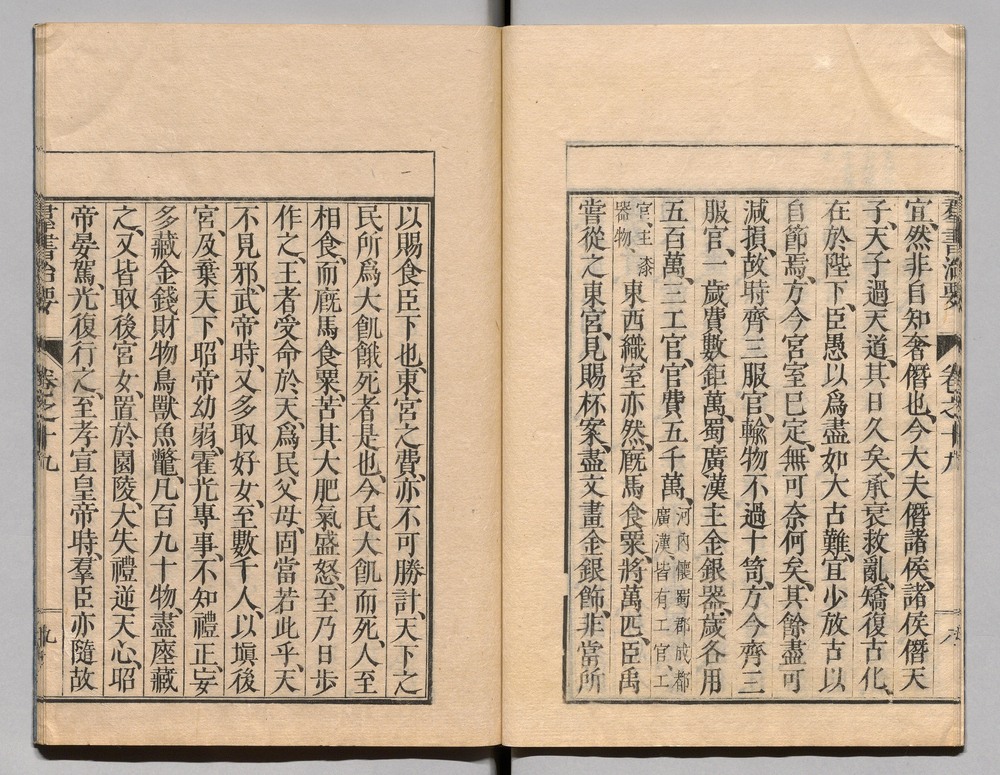 羣書治要 卷之十九 八
宜、然非自知奢僭也、今大夫僭諸侯、諸侯僭天
子、天子過天道、其日久矣、承衰救亂、矯復古化、
在於陛下、臣愚以爲盡如大古難、宜少放古以
自節焉、方今宮室已定、無可奈何矣、其餘盡可
減損、故時齊三服官、輸物不過十笥、方今齊三
服官、一歲費數鉅萬、蜀廣漢主金銀器、歲各用
五百萬、三工官、官費五千萬、河內懷蜀郡成都廣漢皆有工官、工
官、主漆器物、東西織室亦然、廐馬食粟、將萬匹、臣禹
嘗從之東宮、見賜杯案、盡文畫金銀飾、非當所
以賜食臣下也、東宮之費、亦不可勝計、天下之
民所爲大飢餓死者是也、今民大飢而死、人至
相食、而廐馬食粟、苦其大肥氣盛怒、至乃日步
作之、王者受命於天、爲民父母、固當若此乎、天
不見邪、武帝時、又多取好女、至數千人、以塡後
宮、及棄天下、昭帝幼弱、霍光專事、不知禮正、妄
多藏金錢財物、鳥獸魚鼈、凡百九十物、盡瘞藏
之、又皆取後宮女、置於園陵、大失禮逆天心、昭
帝晏駕、光復行之、至孝宣皇帝時、羣臣亦隨故
羣書治要 卷之十九 九